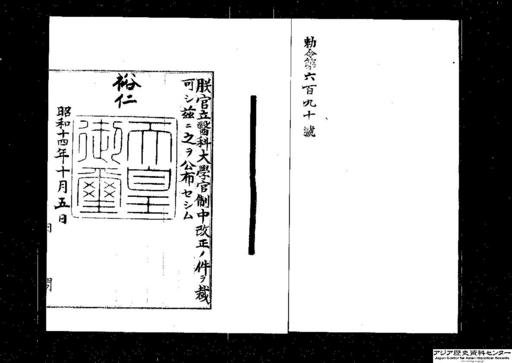 勅令第六百九十號
朕官立醫科大學官制中改正ノ件ヲ裁
可シ茲ニ之ヲ公布セシム
裕仁
天皇
御璽
昭和十四年十月五日
アジア歴史資料センター
Japan Center for Asian Historical Records